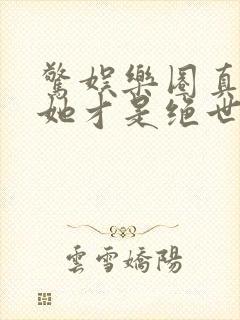 驚娛樂圈真
她才是絕世
雲雪嬌陽